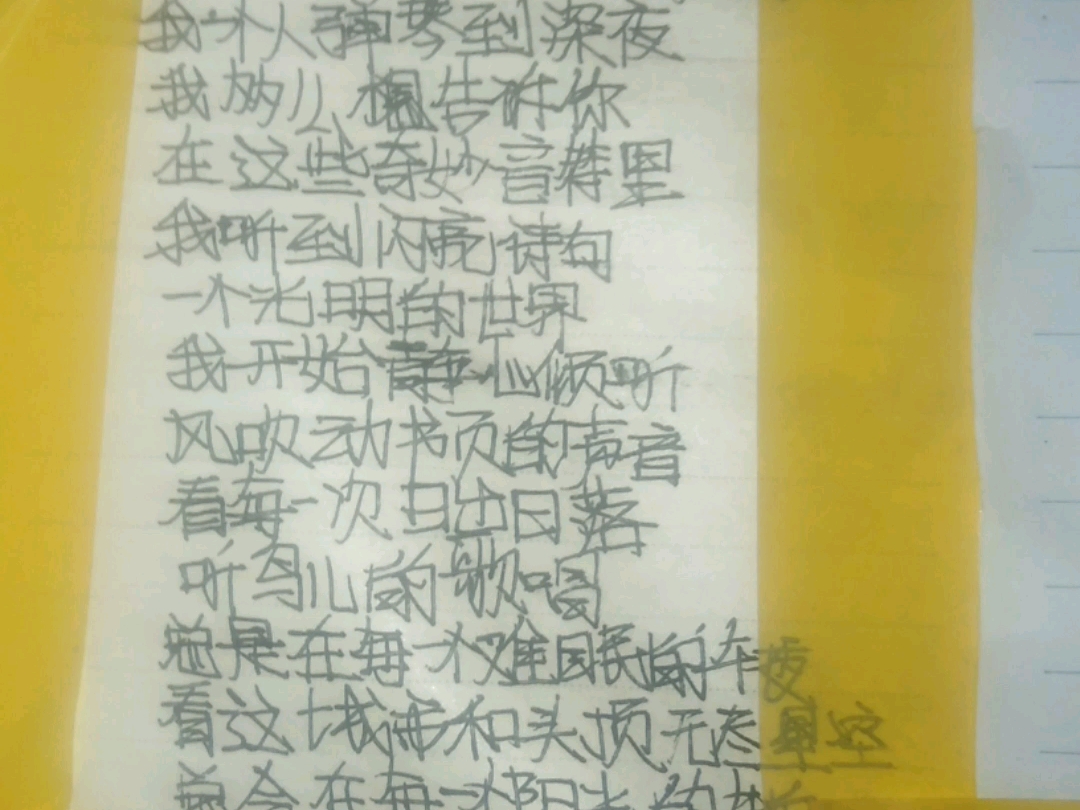 我一个人弹琴到深夜
我 想告诉你
在这些奇妙音符里
我听到闪亮诗句
一个光明的世界
我开始静心倾听
风吹动书页的声音
看每一次日出日落
听鸟儿的歌唱
总是在每一个难眠的午夜
看这城市和头顶无尽星空
总会在每一个阳光的